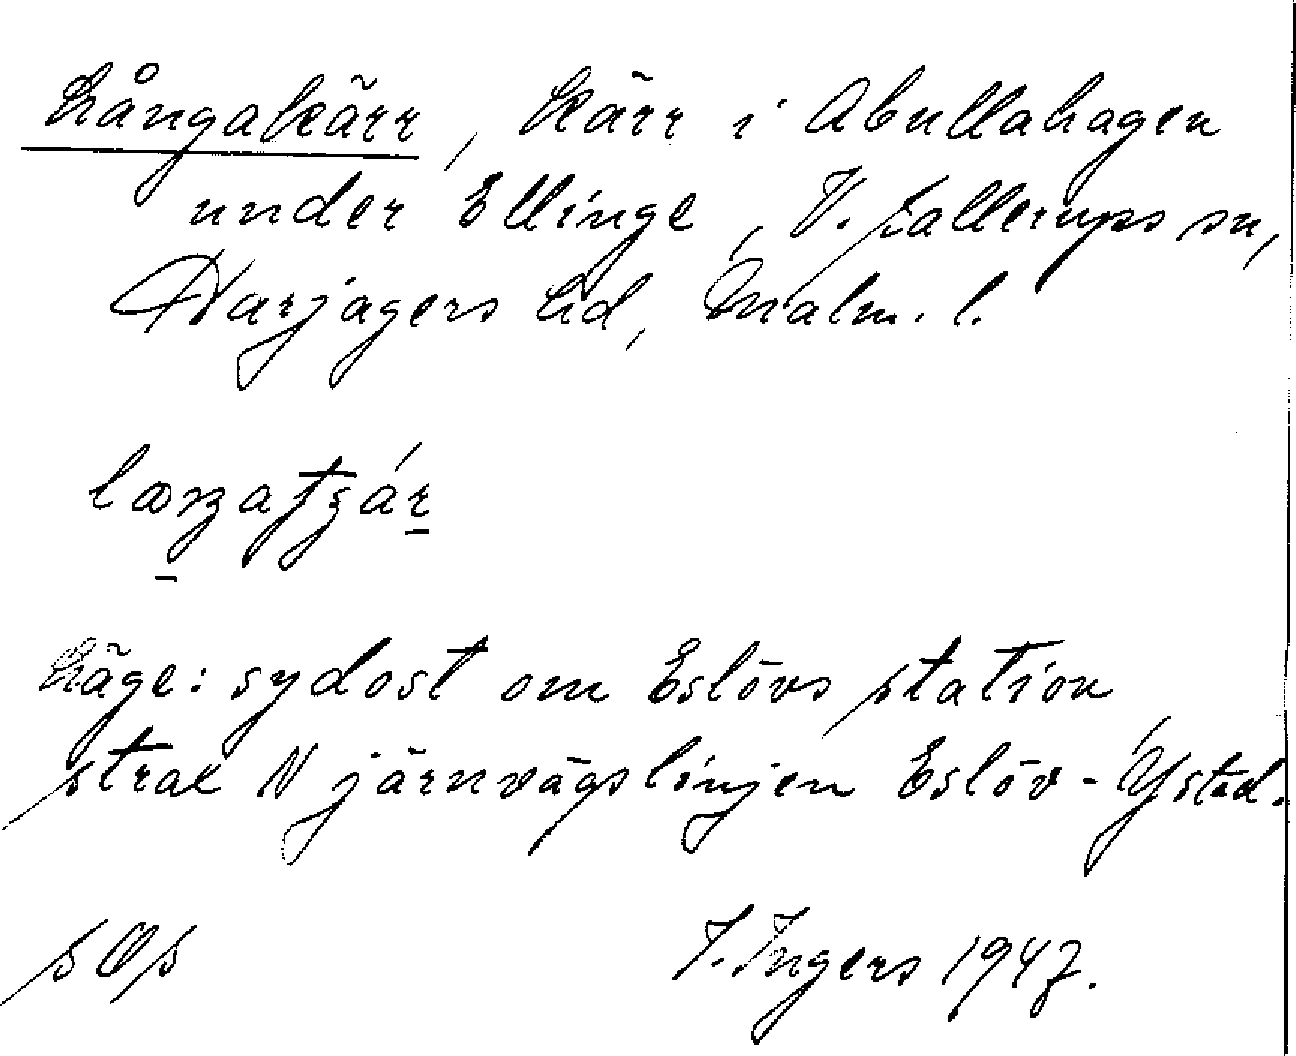 Långakärr, kärr i Abullahagen
under Ellinge, V. Sallerups sn,
Harjagers hd, Malm. l.
Läge: sydost om Eslövs station,
strax N järnvägslinjen Eslöv - Ystad.
sOs I. Ingers 1947.